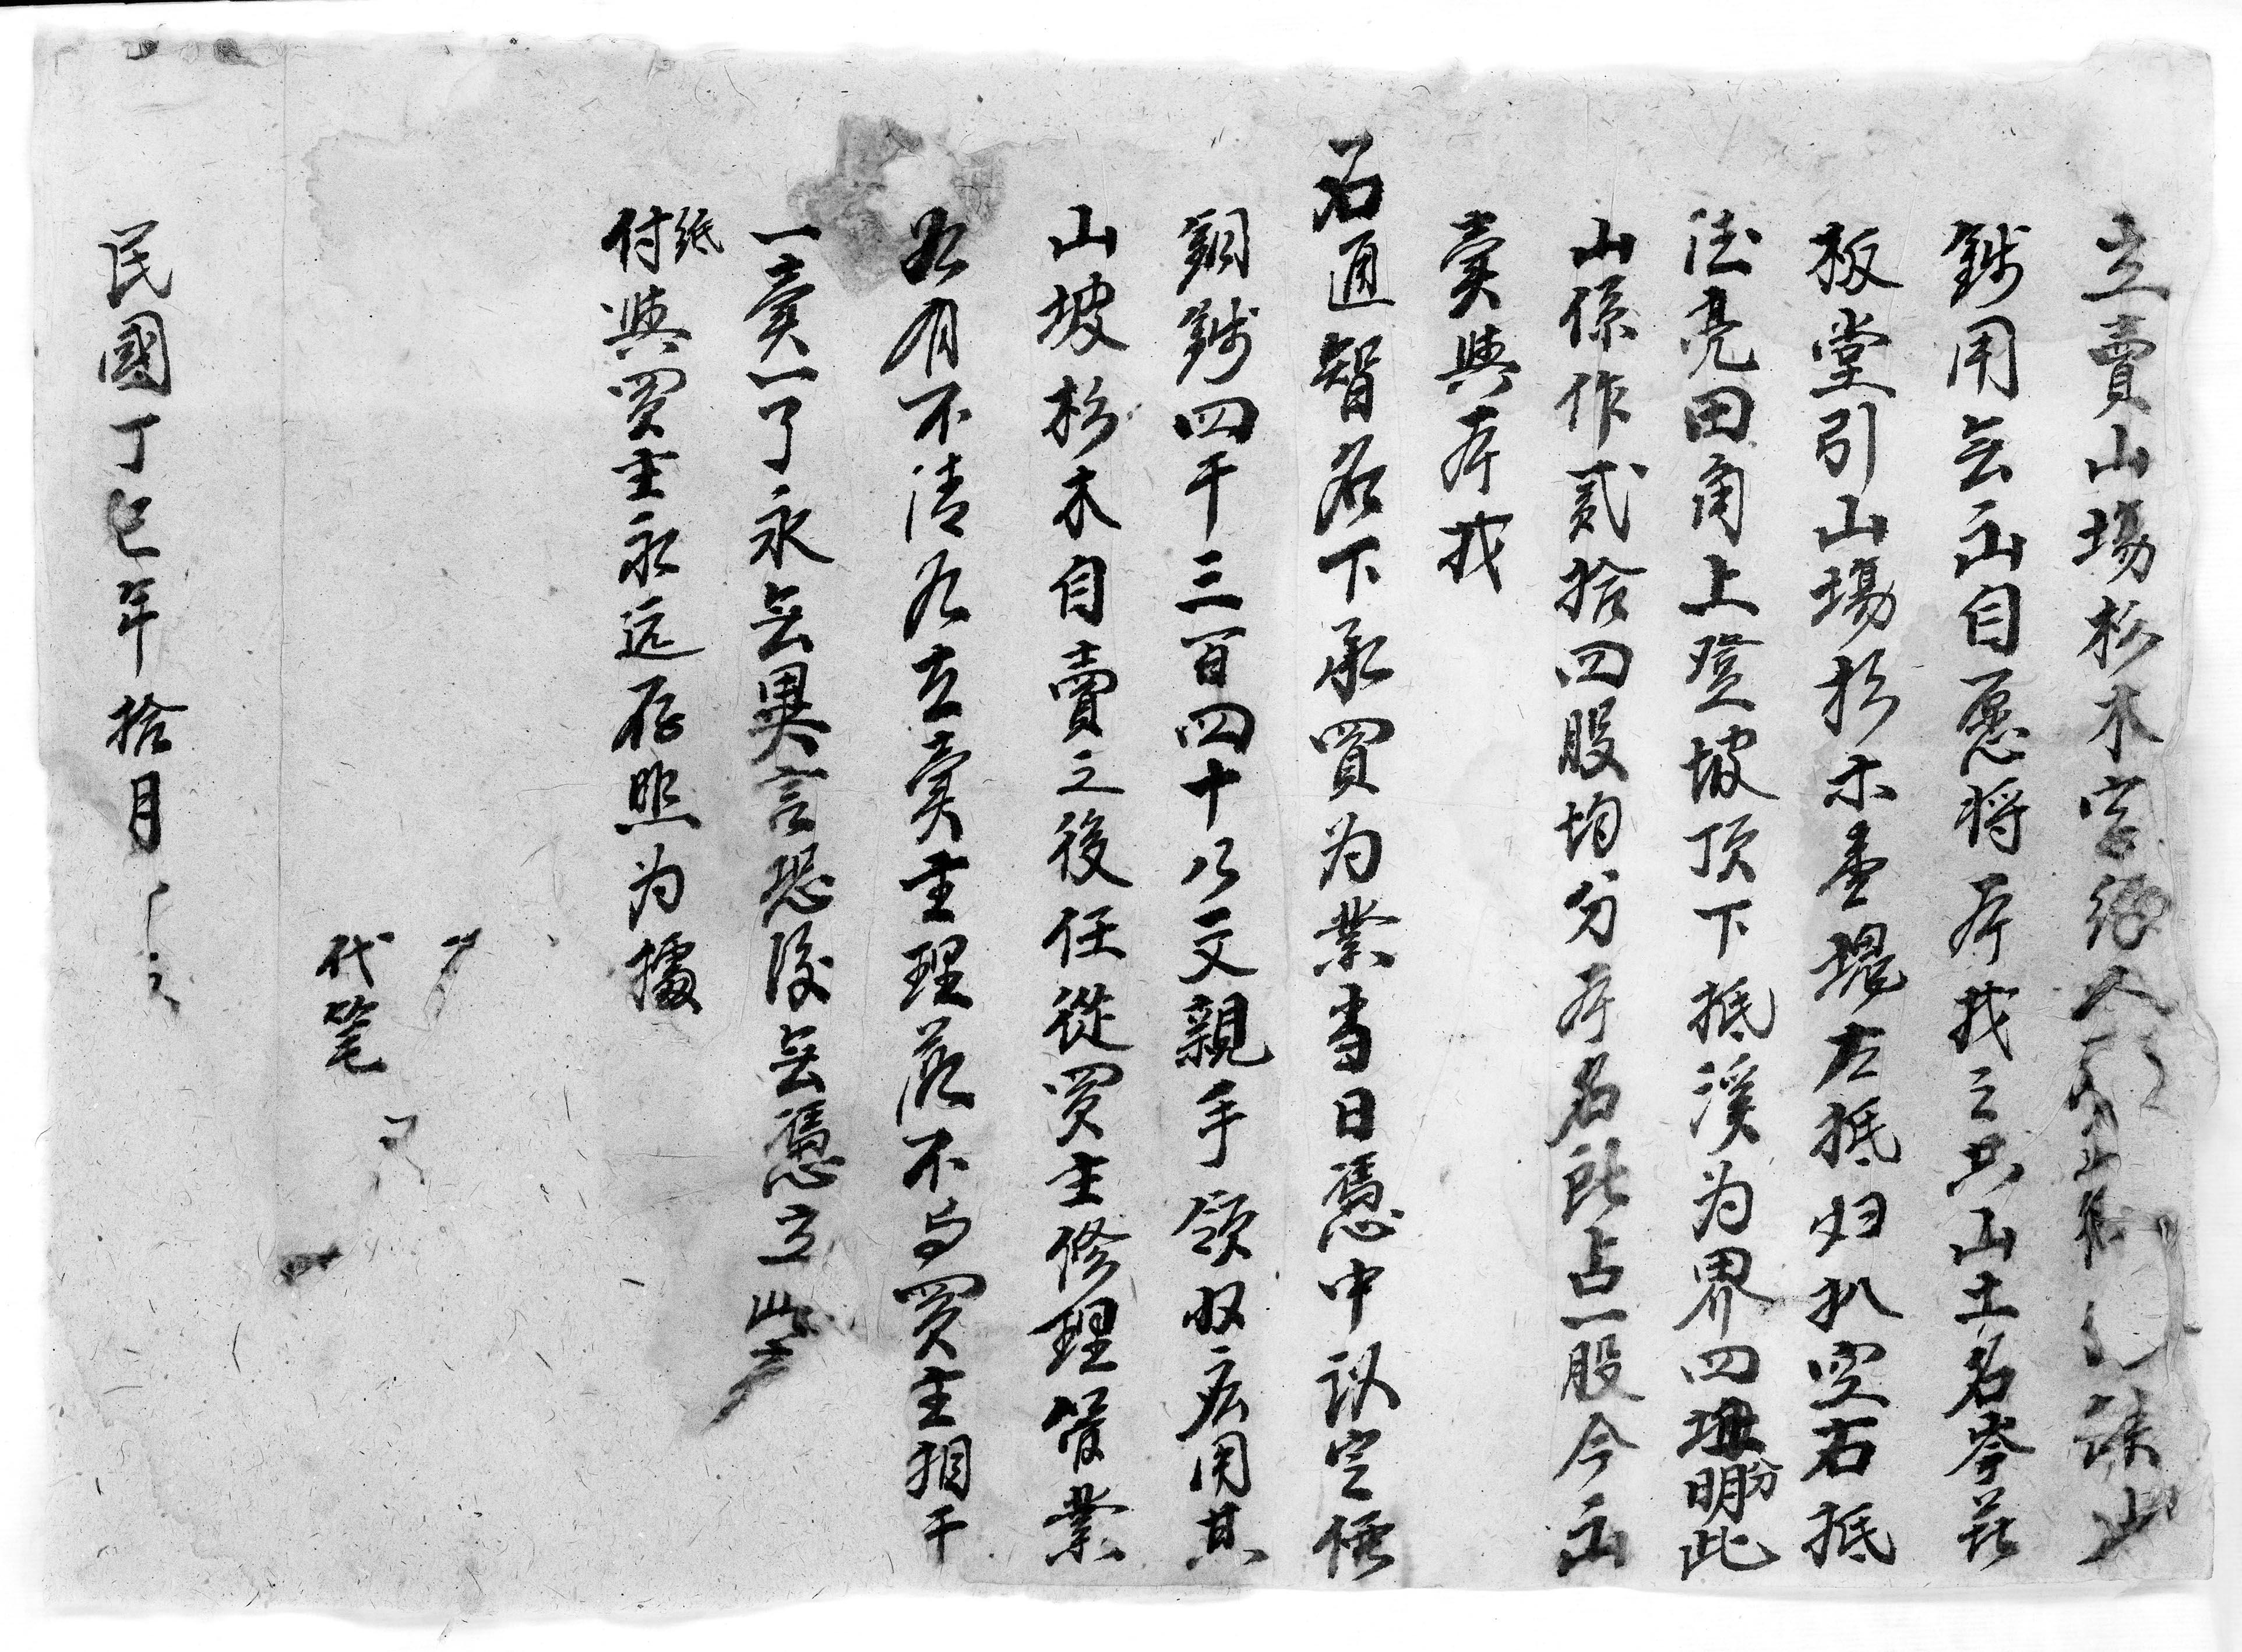 立賣山場杉木字
錢用無出自愿將本找之共山土名岑
板堂引山場杉木壹塊左抵归扒空右抵
德亮田角上登坡頂下抵溪为界四抵分明此
山係作贰拾四股均分本名所占一股今出
賣與本找
石通智名下承買为業当日憑中议定價
銅錢四千三百四十八文親手領收应用其
山坡杉木自賣之後任從買主修理管業
若有不清在賣主理落不与買主相干
一賣一了永無異言恐後無憑立此
纸付與買主永远存照为據
代笔
民國丁巳年拾月